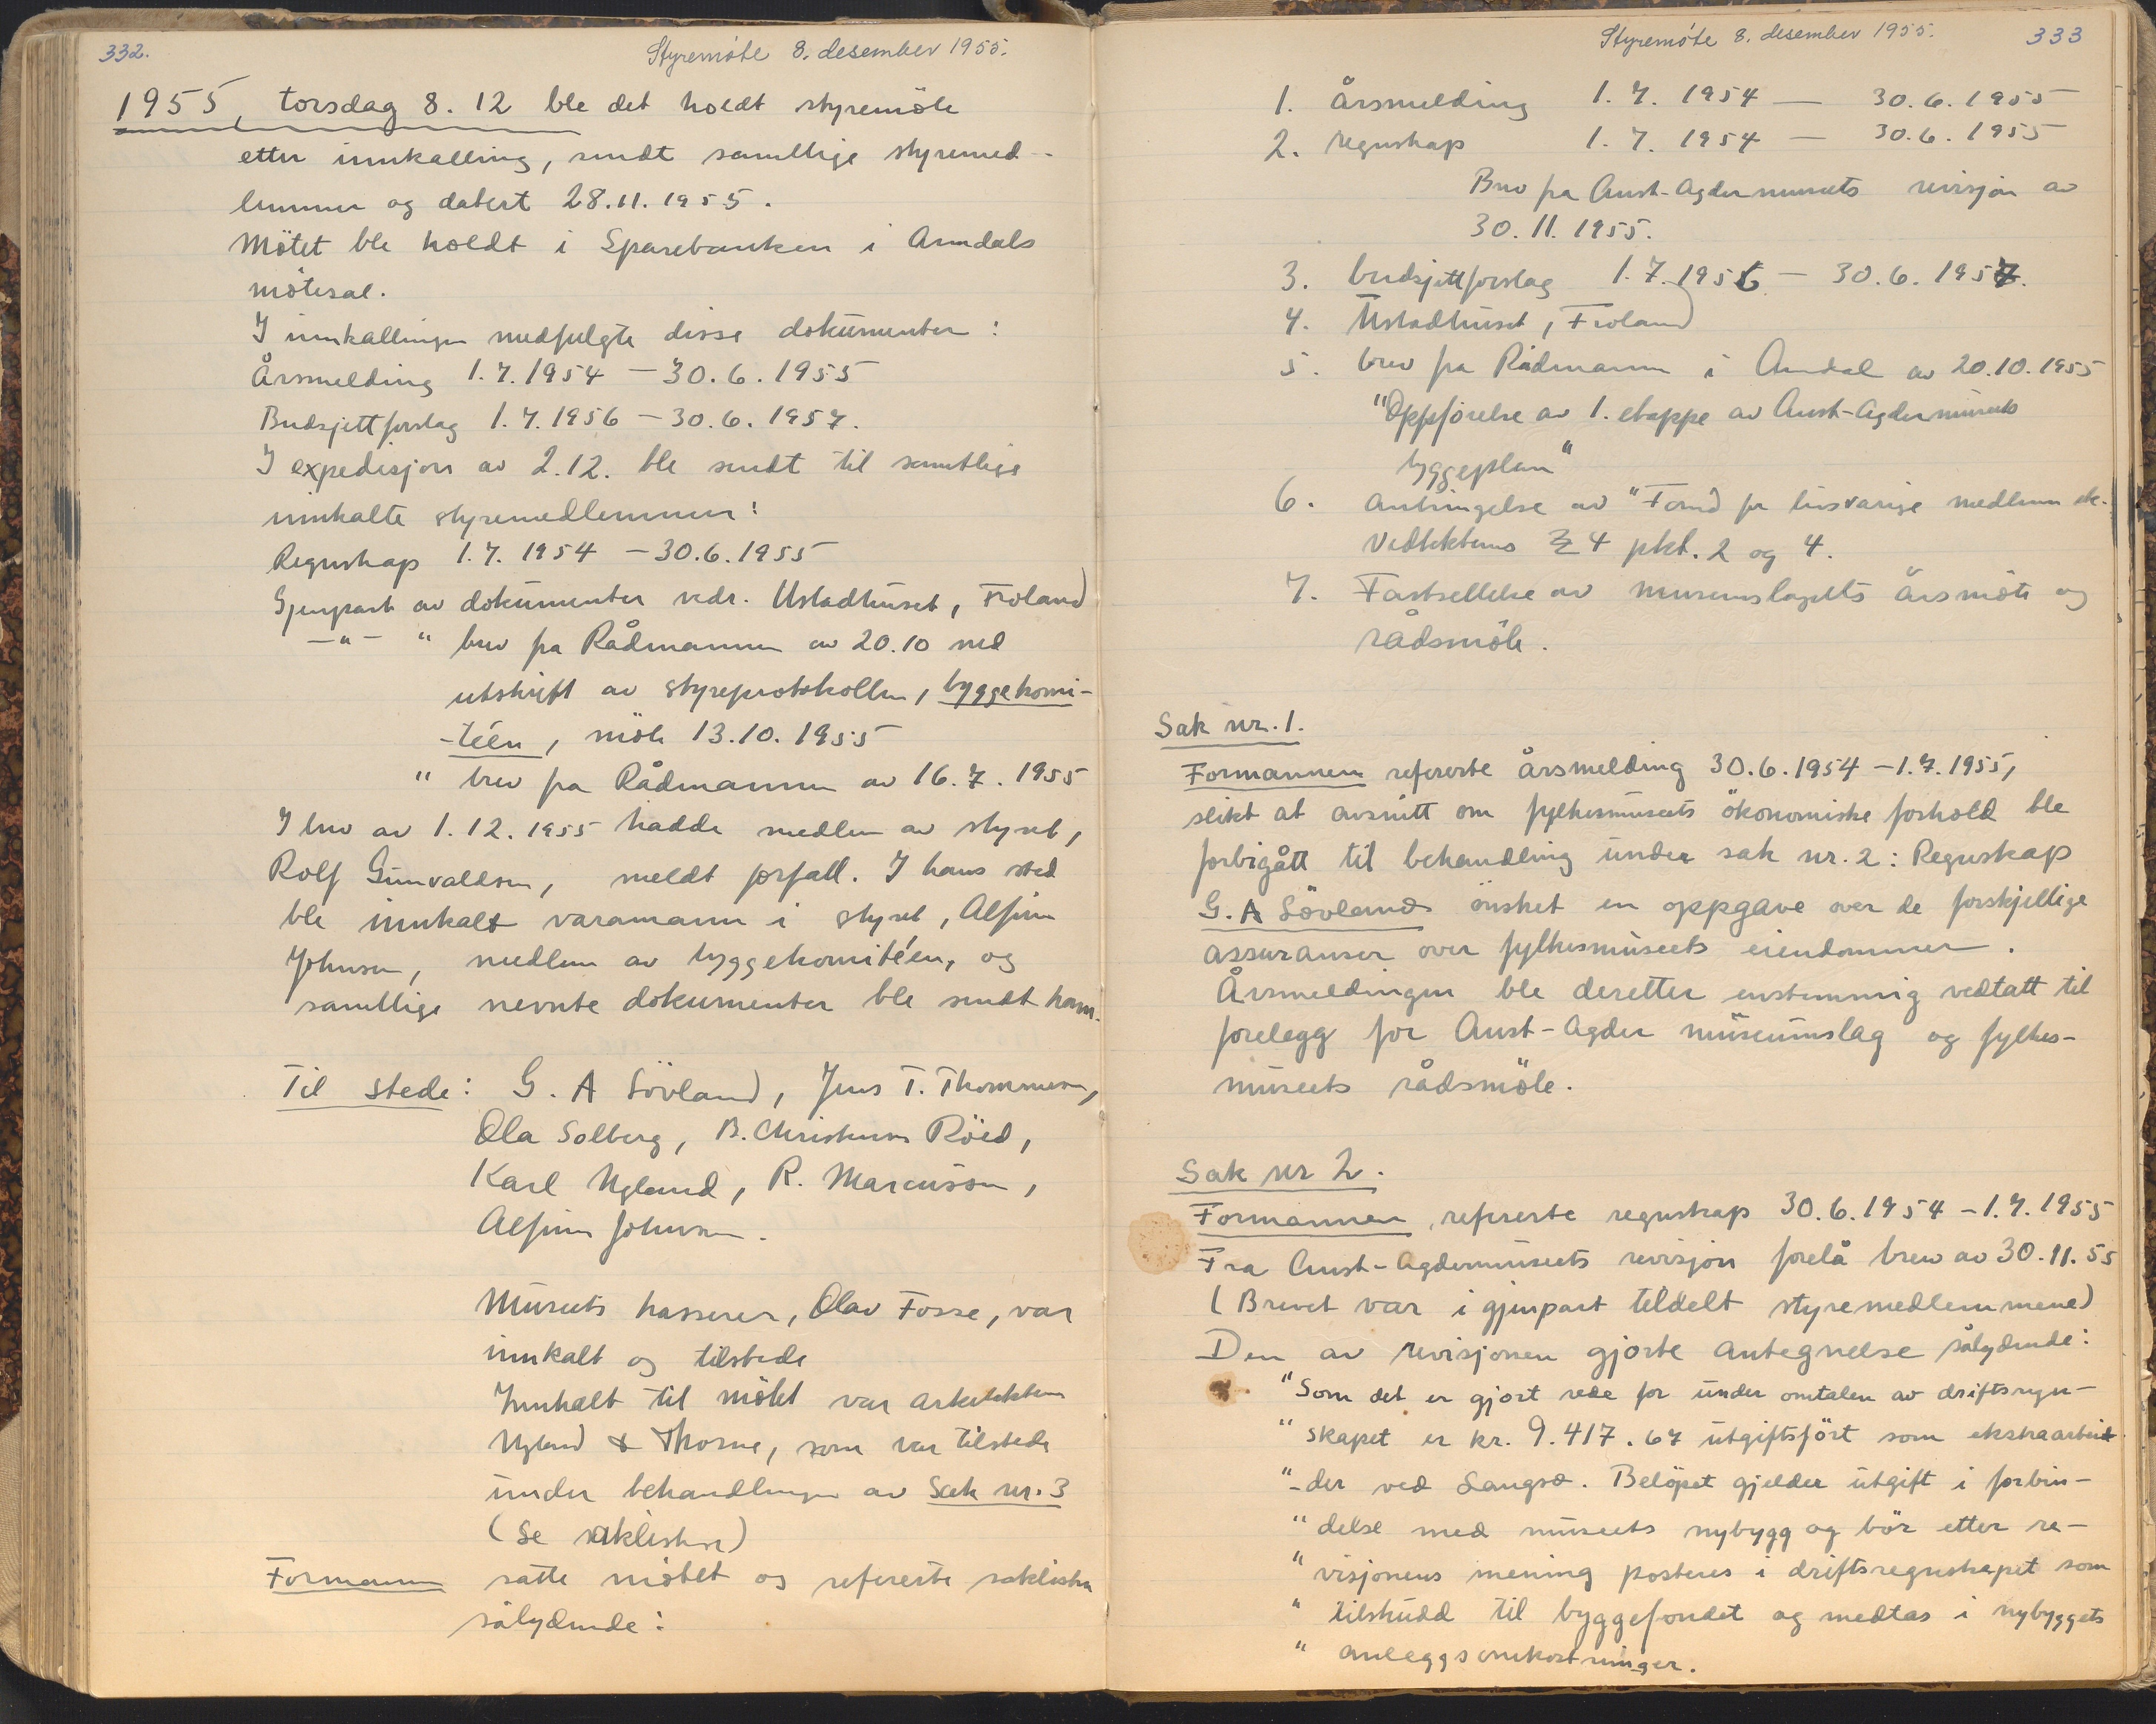 332.
Styremöte 8. desember 1955.
1955, torsdag 8. 12 ble det holdt styremöte
etter innkalling, sendt samtlige styremed-
lemmer og datert 28.11.1955.
Mötet ble holdt i Sparebanken i Arendals
mötesal.
I innkallingen medfulgte disse dokumenter:
Årsmelding 1.7.1954 – 30.6.1955
Budsjettforslag 1.7.1956 – 30.6.1957.
I expedisjon av 2.12. ble sendt til samtlige
innkalte styremedlemmer:
Regnskap 1.7.1954 – 30.6.1955
Gjenpart av dokumenter vedr. Ustadhuset, Froland
–"– " brev fra Rådmannen av 20.10 med
utskrift av styreprotokollen, byggekomi-
-téen, möte 13.10.1955
" brev fra Rådmannen av 16.7.1955
I brev av 1.12.1955 hadde medlem av styret,
Rolf Gunvaldsen, meldt forfall. I hans sted
ble innkalt varamann i styret, Alfinn
Johnsen, medlem av byggekomitéen, og
samtlige nevnte dokumenter ble sendt ham.
Til stede: G. A Sövland, Jens T. Thommesen,
Ola Solberg, B. Christensen Röed,
Karl Nyland, R. Marcussen,
Alfinn Johnsen.
Museets kasserer, Olav Fosse, var
innkalt og tilstede
Innkalt til mötet var arkitekten
Ugland & Thorne, som var tilstede
under behandlingen av Sak nr. 3
(Se saklisten)
Formannen satte mötet og refererte saklisten
sålydende:
Styremöte 8. desember 1955.
333
1. Årsmelding 1.7.1954 – 30.6.1955
2. regnskap 1.7.1954 – 30.6.1955
Brev fra Aust-Agdermuseets revisjon av
30.11.1955.
3. budsjettforslag 1.7.1956 – 30.6.1957.
4. Ustadhuset, Froland
5. brev fra Rådmannen i Arendal av 20.10.1955
"Oppförelse av 1. etappe av Aust-Agdermuseets
byggeplan"
6. anbringelse av "Fond for livsvarige medlemmer
Vedtektenes § 4 pkt. 2 og 4.
7. Fastsettelse av museumslagets årsmöte og
rådsmöte.
Sak nr. 1.
Formannen refererte årsmelding 30.6.1954 – 1.7.1955,
slikt at avsnitt om fylkesmuseets ökonomiske forhold ble
forbigått til behandling under sak nr. 2: Regnskap
G. A Sövland önsket en oppgave over de forskjellige
assuranser over fylkesmuseets eiendommer.
Årsmeldingen ble deretter enstemmig vedtatt til
forelegg for Aust-Agder museumslag og fylkes-
museets rådsmöte.
Sak nr 2.
Formannen refererte regnskap 30.6.1954 – 1.7.1955
Fra Aust-Agdermuseets revisjon forelå brev av 30.11.55
(Brevet var i gjenpart tildelt styremedlemmene)
Den av revisjonen gjorte antegnelse sålydende:
"Som det er gjort rede for under omtalen av driftsregn-
" skapet er kr. 9.417.67 utgiftsfört som ekstraarbeid
"-der ved Langsæ. Belöpet gjelder utgift i forbin-
" delse med museets nybygg og bör etter re-
" visjonens mening posteres i driftsregnskapet som
" tilskudd til byggefondet og medtas i nybyggets
" anleggsomkostninger.